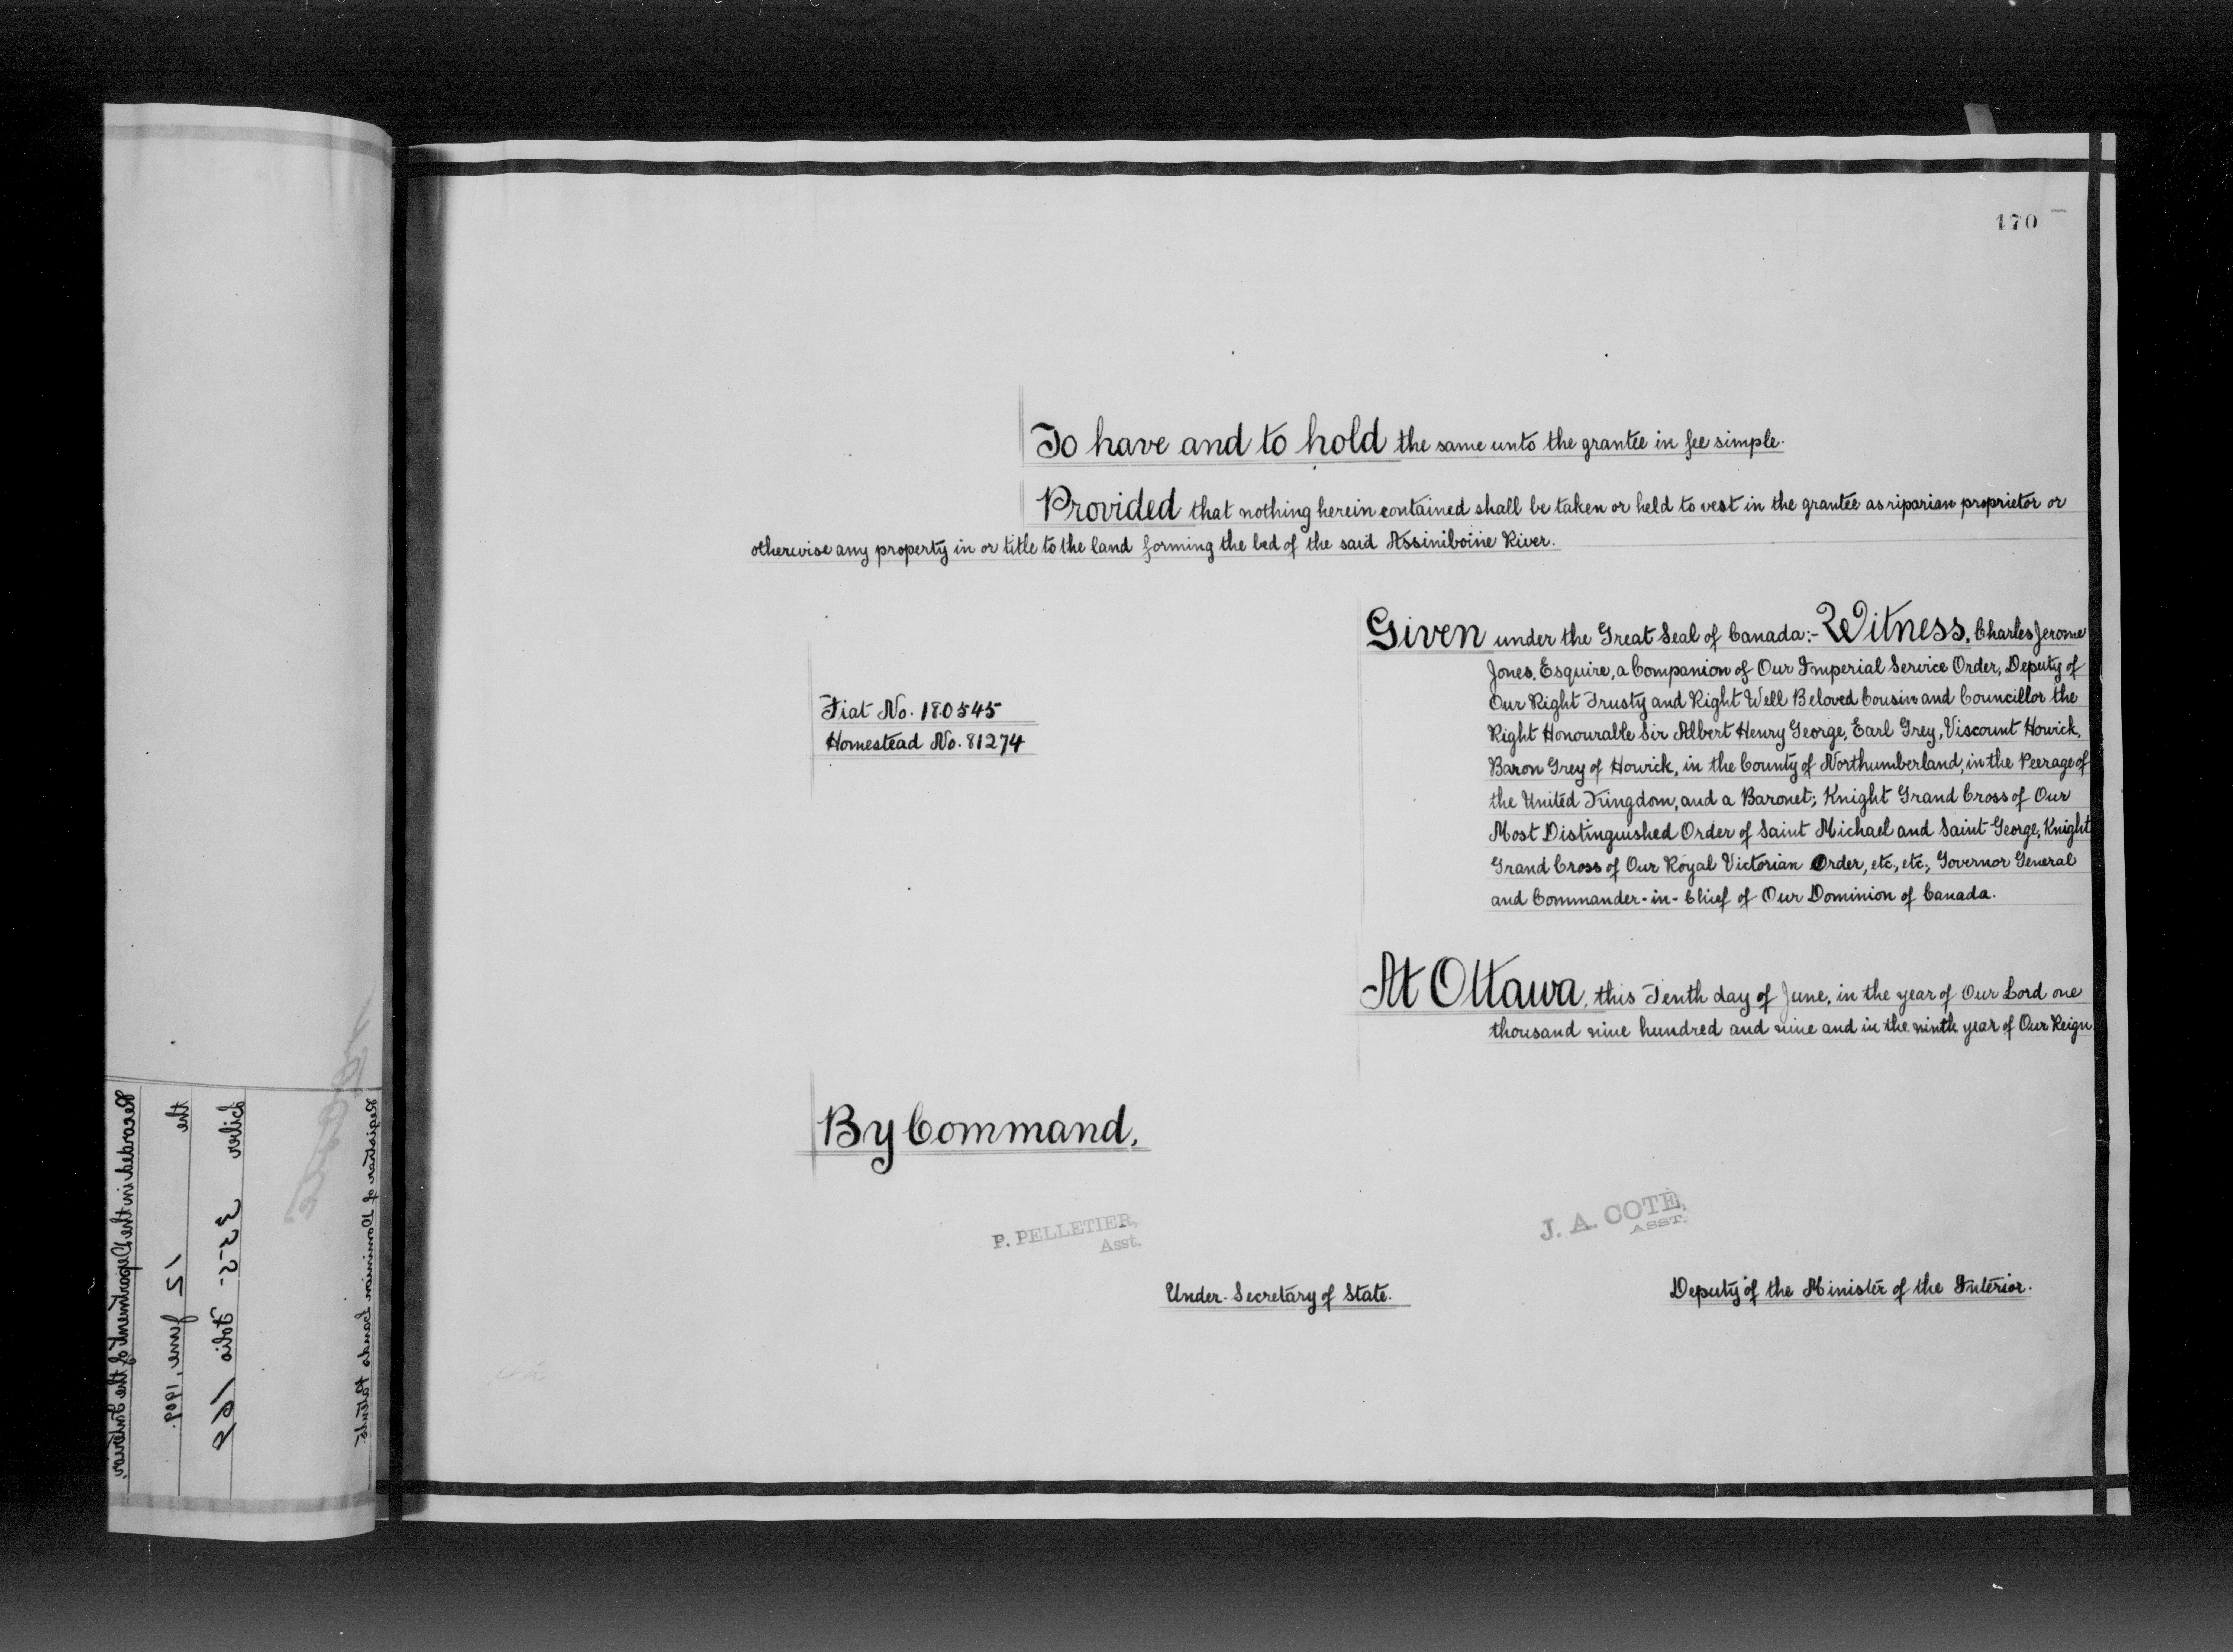 170
To have and to hold the same unto the grantee in fee simple.
Provided that nothing herein contained shall be taken or held to vest in the grantee as riparian proprietor or
otherwise any property in or title to the land forming the bed of the said Assiniboine River.
Given under the Great Seal of Canada:- Witness, Charles Jerome
Jones, Esquire, a Companion of Our Imperial Service Order, Deputy of
Our Right Trusty and Right Well Beloved Cousin and Councillor the
Right Honourable Sir Albert Henry George, Earl Grey, Viscount Howick,
Baron Grey of Howick, in the County of Northumberland, in the Peerage of
the United Kingdom, and a Baronet; Knight Grand Cross of Our
Most Distinguished Order of Saint Michael and Saint George, Knight
Grand Cross of Our Royal Victorian Order, etc., etc., Governor General
and Commander-in-Chief of Our Dominion of Canada.
Fiat No. 180545
Homestead No. 81274
At Ottawa, this Tenth day of June, in the year of Our Lord one
thousand nine hundred and nine and in the ninth year of Our Reign
By Command,
P. PELLETIER,
Asst.
Under-Secretary of State.
J. A. COTÉ,
ASST.
Deputy of the Minister of the Interior.
Recorded in the Department of the Interior,
the 12 June, 1909.
Liber 355 Folio 169
Registrar of Dominion Lands Patents.